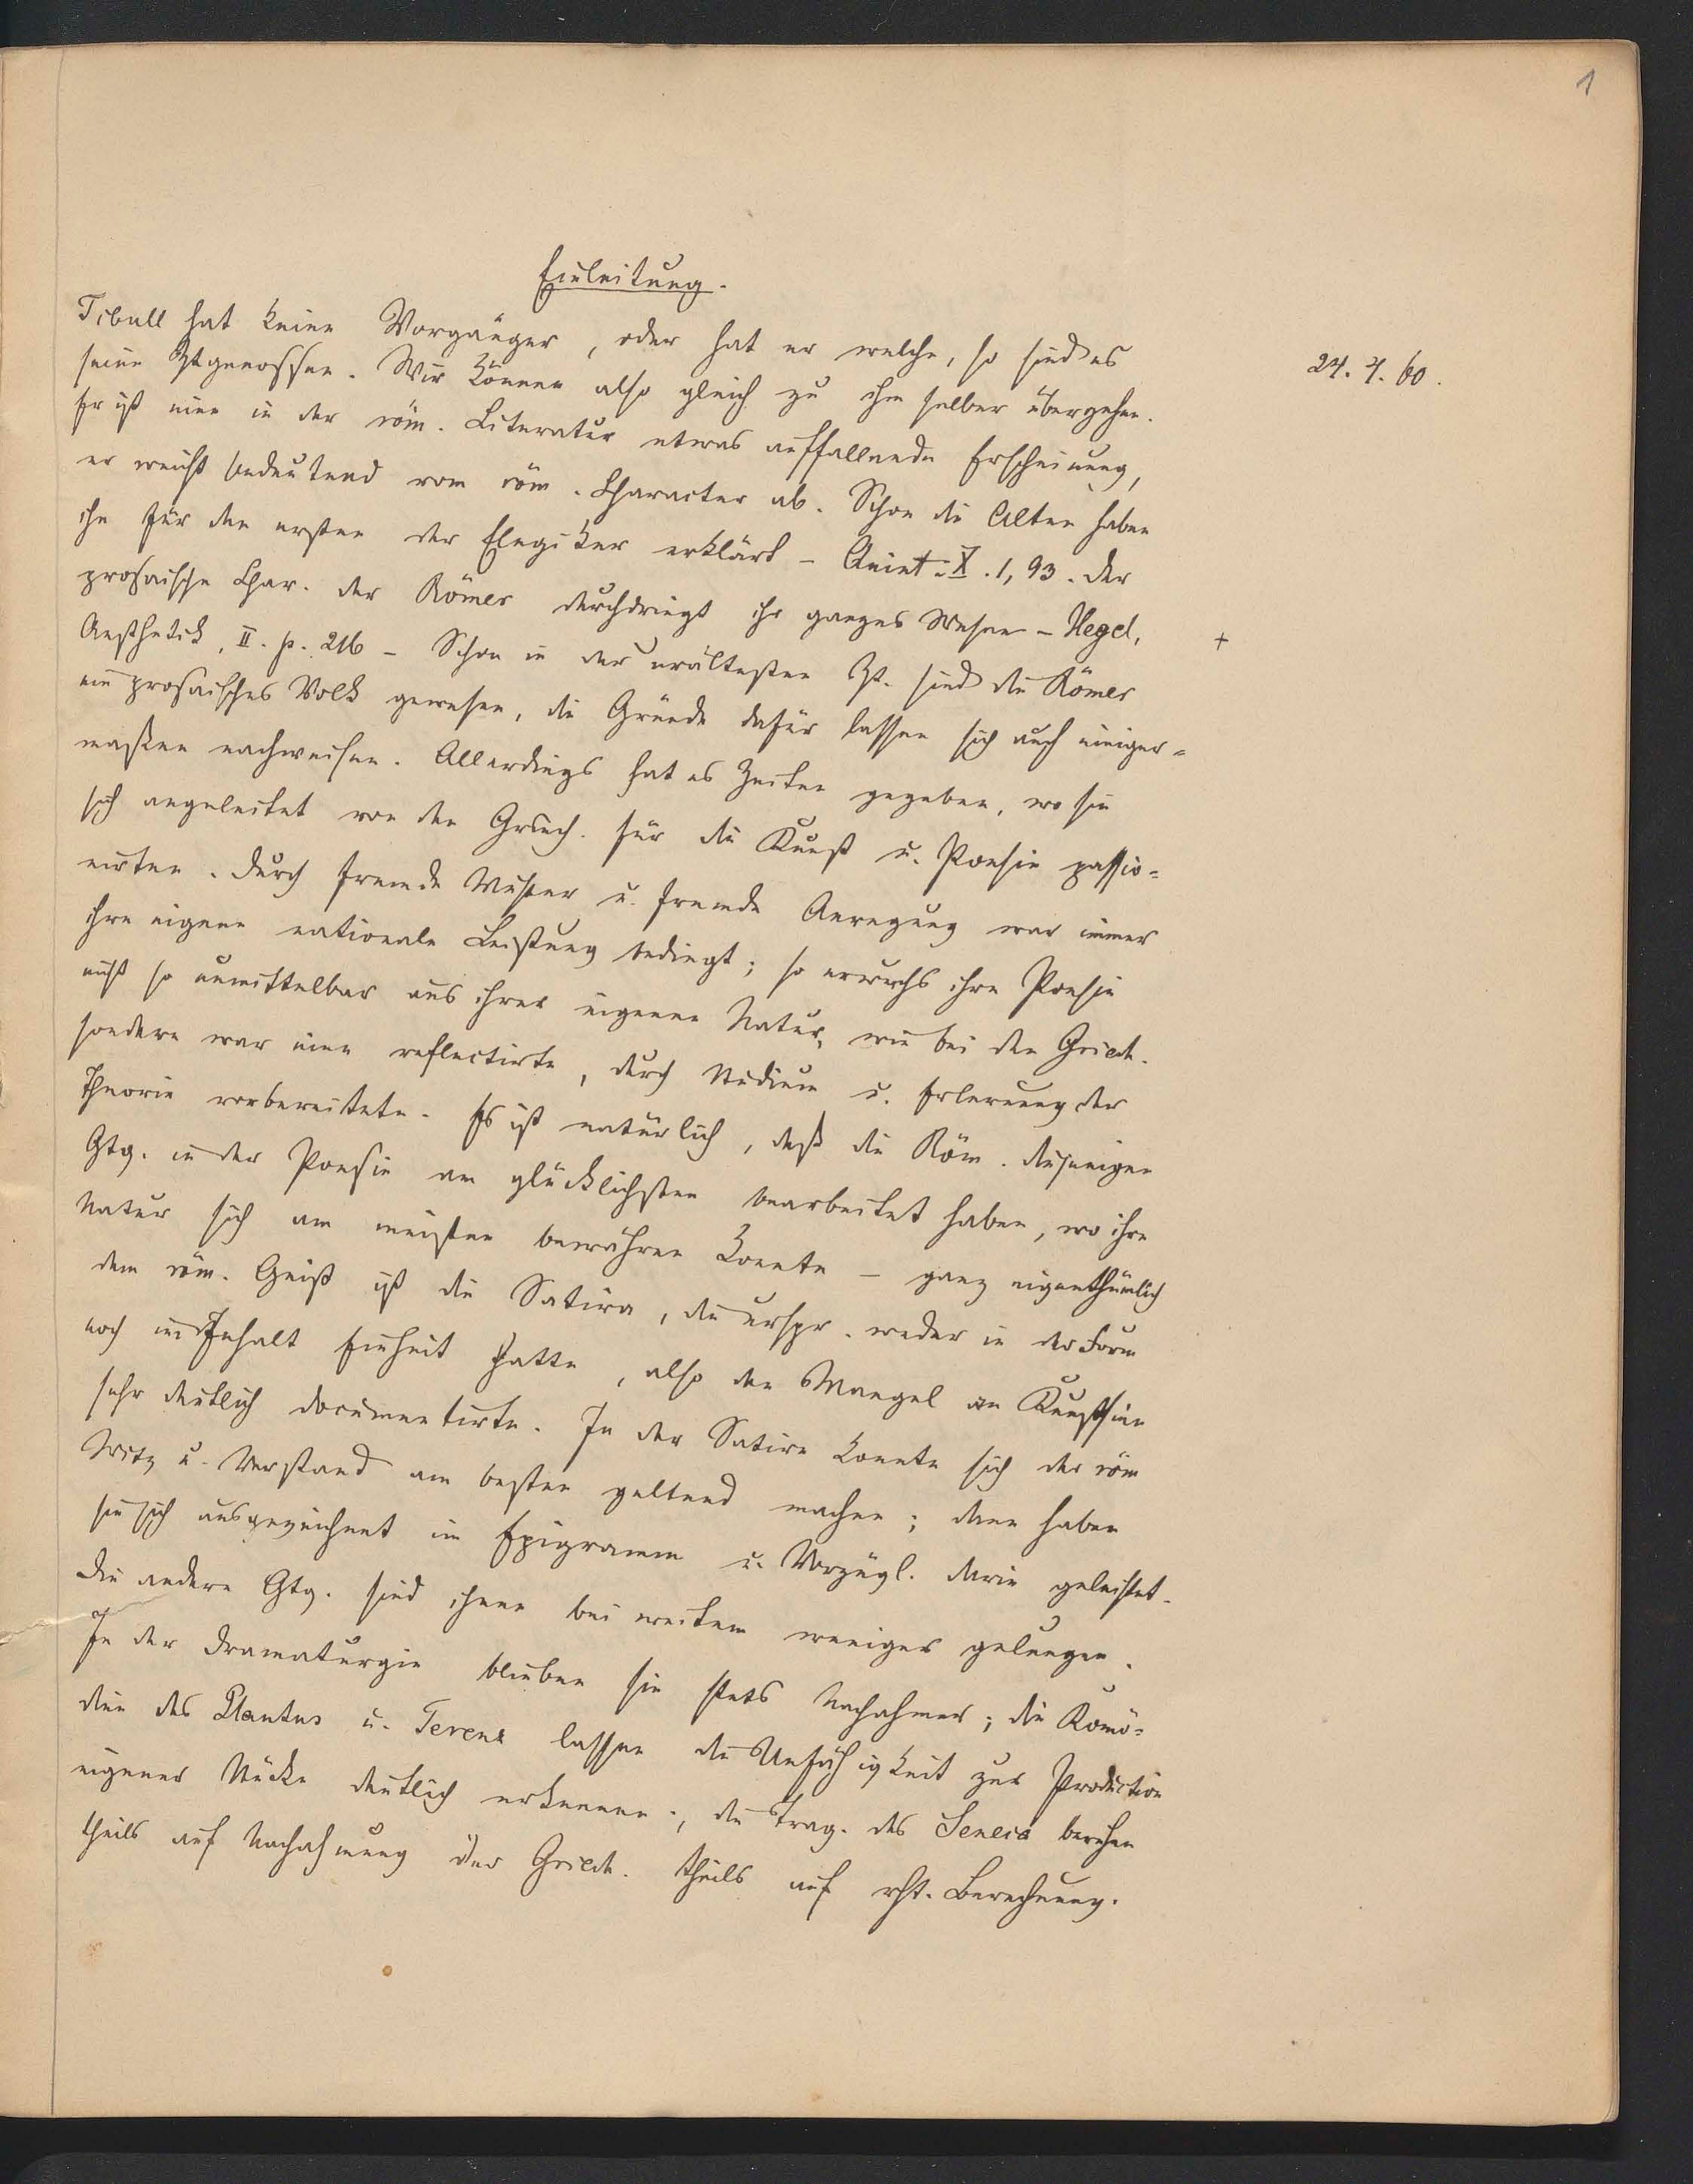 1
Einleitung.
Tibull hat keine Vorgänger, oder hat er welche, so sind es
24. 4. 60.
seine Ztgenossen. Wir können also gleich zu ihm selber übergehen.
Er ist eine in der röm. Literatur etwas auffallende Erscheinung,
er weicht bedeutend vom röm. Character ab. Schon die Alten haben
ihn für den ersten der Elegiker erklärt – Quint. X. 1, 93. Der
prosaische Char. der Römer durchdringt ihr ganzes Wesen – Hegel,
+
Aesthetik, II. p. 216 – Schon in der urältesten Zt. sind die Römer
ein prosaisches Volk gewesen, die Gründe dafür lassen sich auch einiger=
maßen nachweisen. Allerdings hat es Zeiten gegeben, wo sie
sich angeleitet von den Griech. für die Kunst u. Poesie passio=
nirten. Durch fremde Muster u. fremde Anregung war immer
ihre eigene nationale Leistung bedingt; so erwuchs ihre Poesie
nicht so unmittelbar aus ihrer eigenen Natur, wie bei den Griech.
sondern war eine reflectirte, durch Studium u. Erlernung der
Theorie vorbereitete. Es ist natürlich, daß die Röm. diejenigen
Gtg. in der Poesie am glücklichsten bearbeitet haben, wo ihre
Natur sich am meisten bewähren konnte – ganz eigenthümlich
dem röm. Geist ist die Satira, die urspr. weder in der Form
noch im Inhalt Einheit hatte, also den Mangel an Kunstsinn
sehr deutlich documentirte. In der Satire konnte sich der röm
Witz u. Verstand am besten geltend machen; dann haben
sie sich ausgezeichnet im Epigramm u. Vorzügl. darin geleistet.
Die andern Gtg. sind ihnen bei weitem weniger gelungen.
In der Dramaturgie blieben sie stets Nachahmer; die Komö=
dien des Plautus u. Terenz lassen die Unfähigkeit zur Production
eigener Stücke deutlich erkennen; die Trag. des Seneca beruhen
theils auf Nachahmung der Griech. theils auf rht. Berechnung.